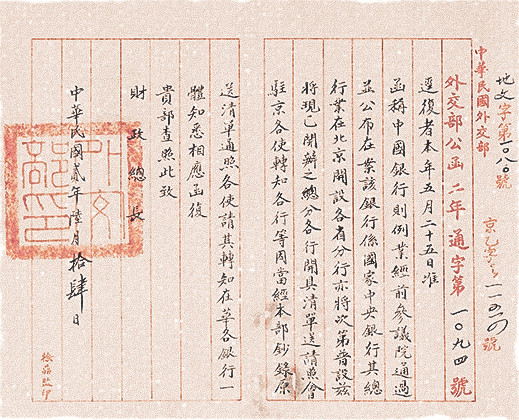 地文字第一〇八〇號
中華民國外交部
外交部公函二年通字第一〇九四號
逕復者本年五月二十五日准
函稱中國銀行則例業經前參議院通過
並公布在業該銀行係國家中央銀行其總
行業在北京開設各省分行亦將次第普設茲
將現已開辦之總分各行開具清單送請照會
駐京各使轉知各行等因當經本部鈔錄原
送清單通照各使請其轉知在華各銀行一
體知悉相應函復
貴部查照此致
財政總長
中華民國貳年陸月拾肆日